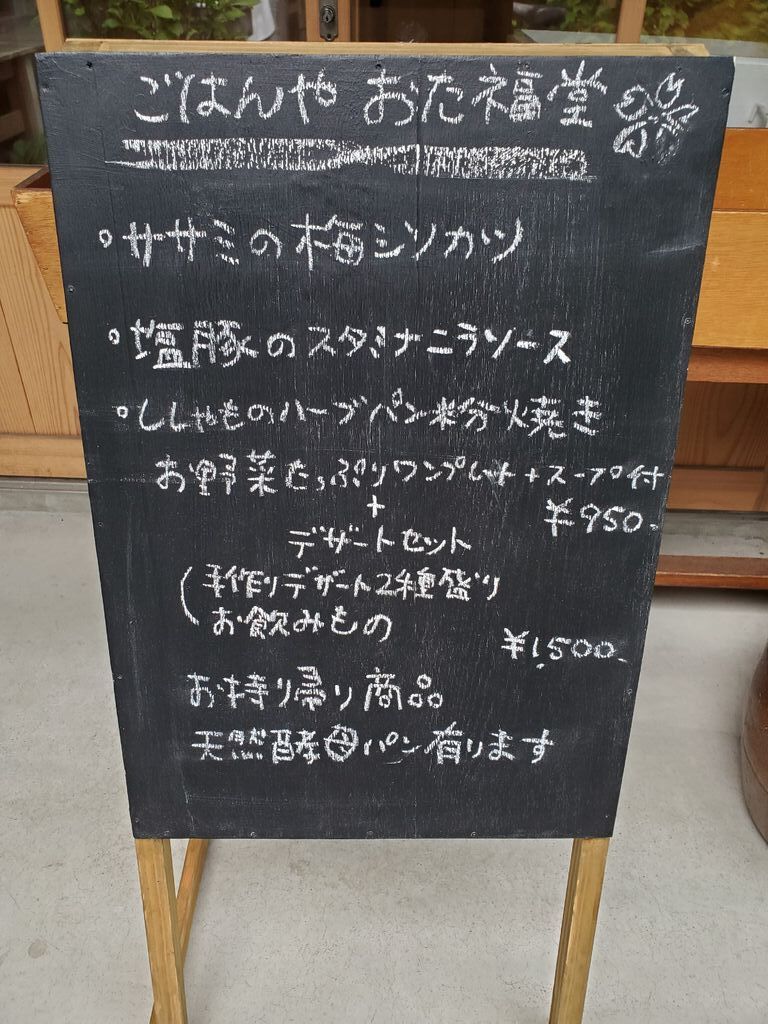 ごはんや おた福堂
°ササミの梅シソカツ
°塩豚のスタミナニラソース
°ししゃものハーブパン粉焼き
お野菜たっぷりワンプレート+スープ付
¥950.
+
デザートセット
(手作りデザート2種盛り
お飲みもの
¥1,500.
お持り帰り商品
天然酵母パン有ります